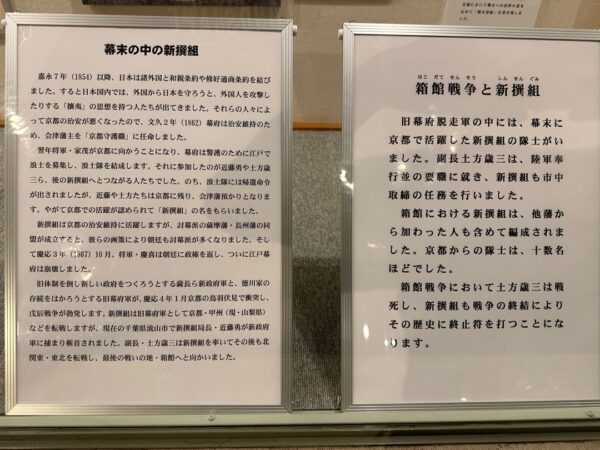 幕末の中の新撰組
嘉永7年（1854）以降、日本は諸外国と和親条約や修好通商条約を結び
ました。すると日本国内では、外国から日本を守ろうと、外国人を攻撃し
たりする「攘夷」の思想を持つ人たちが出てきました。それらの人々によ
って京都の治安が悪くなったので、文久2年（1862）幕府は治安維持のた
め、会津藩主を「京都守護職」に任命しました。
翌年将軍・家茂が京都に向かうことになり、幕府は警護のために江戸で
浪士を募集し、浪士隊を結成します。それに参加したのが近藤勇や土方歳
三ら、後の新撰組へとつながる人たちでした。のち、浪士隊には帰還命令
が出されましたが、近藤や土方たちは京都に残り、会津藩預かりとなりま
す。やがて京都での活躍が認められて「新撰組」の名をもらいました。
新撰組は京都の治安維持に活躍しますが、討幕派の薩摩藩・長州藩の同
盟が成立すると、彼らの画策により朝廷も討幕派が多くなりました。そし
て慶応3年（1867）10月、将軍・慶喜は朝廷に政権を返し、ついに江戸幕
府は崩壊しました。
旧体制を倒し新しい政府をつくろうとする薩長ら新政府軍と、徳川家の
存続をはかろうとする旧幕府軍が、慶応4年1月京都の鳥羽伏見で衝突し、
戊辰戦争が勃発します。新撰組は旧幕府軍として京都・甲州（現・山梨県）
などを転戦しますが、現在の千葉県流山市で新撰組局長・近藤勇が新政府
軍に捕まり斬首されました。副長・土方歳三は新撰組を率いてその後も北
関東・東北を転戦し、最後の戦いの地・箱館へと向かいました。
はこだてせんそう しんせんぐみ
箱館戦争と新撰組
旧幕府脱走軍の中には、幕末に
京都で活躍した新撰組の隊士がい
ました。副長土方歳三は、陸軍奉
行並の要職に就き、新撰組も市中
取締の任務を行いました。
箱館における新撰組は、他藩か
ら加わった人も含めて編成されま
した。京都からの隊士は、十数名
ほどでした。
箱館戦争において土方歳三は戦
死し、新撰組も戦争の終結により
その歴史に終止符を打つことにな
ります。